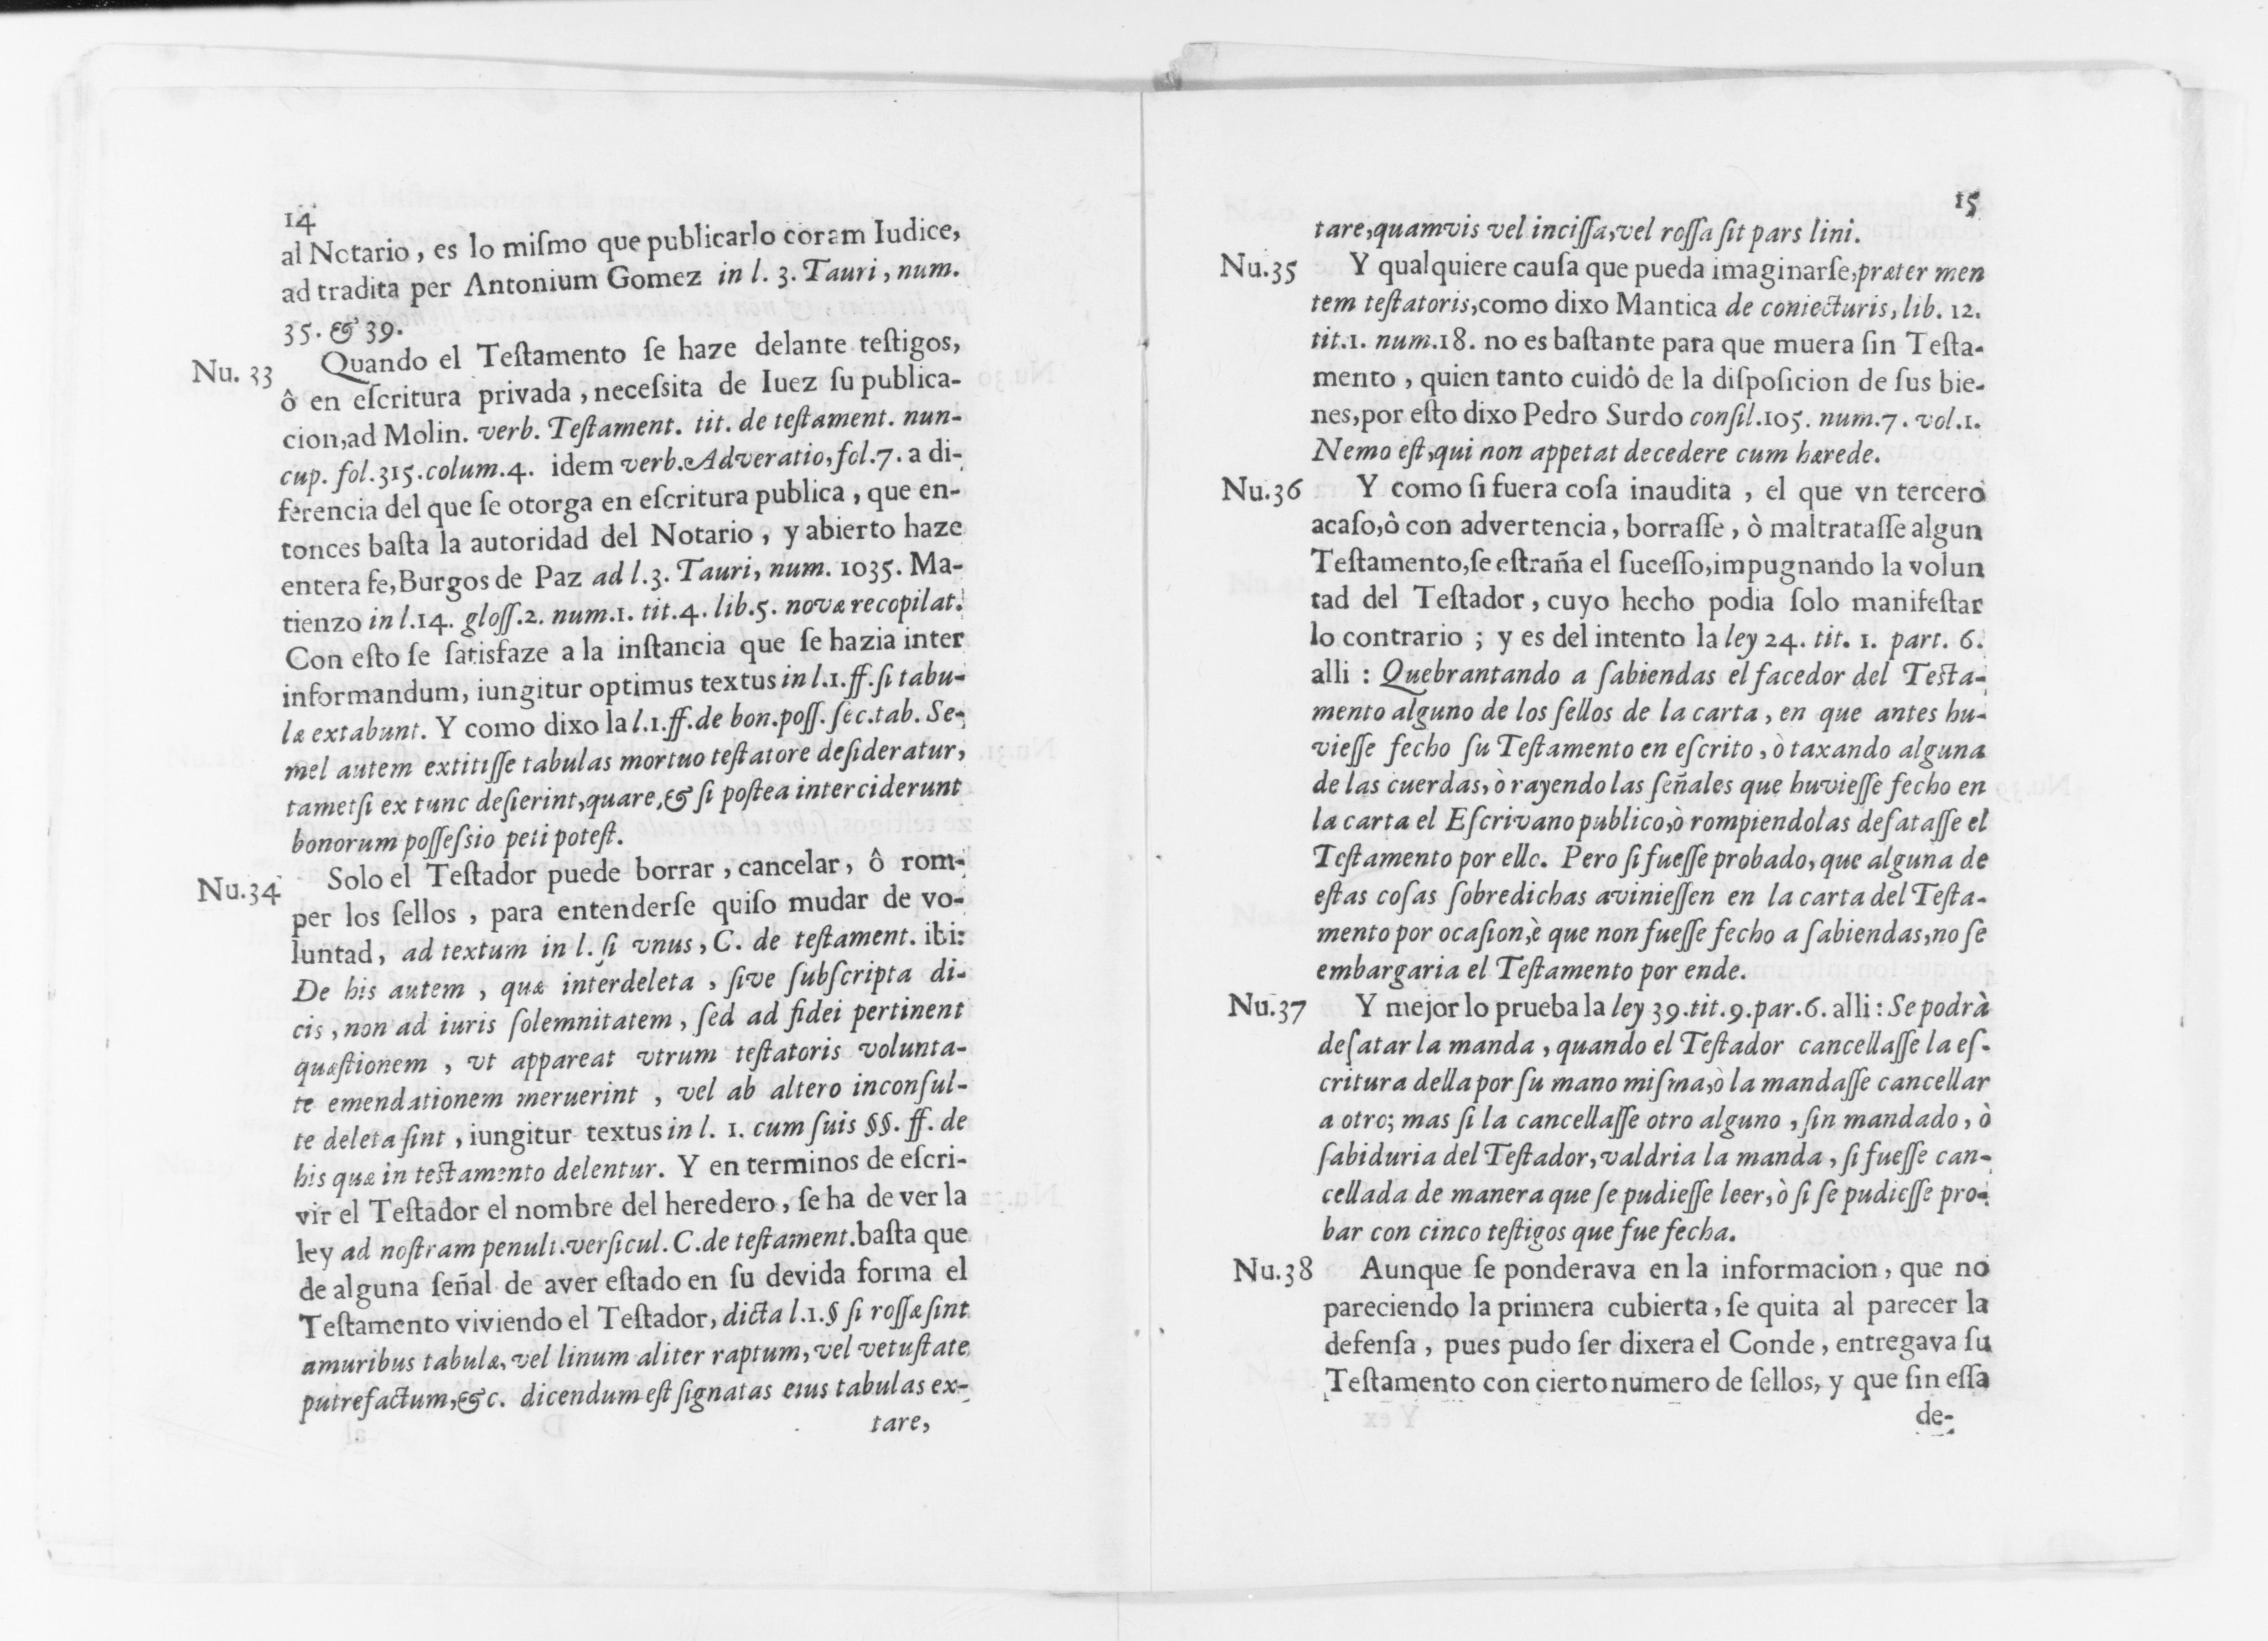 14
al Notario, es lo miſmo que publicarlo coram Iudice,
ad tradita per Antonium Gomez in l. 3. Tauri, num.
35. & 39.
Nu. 33 Quando el Teſtamento ſe haze delante teſtigos,
ô en eſcritura privada, neceſsita de Iuez ſu publica-
cion, ad Molin. verb. Teſtament. tit. de teſtament. nun-
cup. fol. 315. colum. 4. idem verb. Adveratio, fol. 7. a di-
ferencia del que ſe otorga en eſcritura publica, que en-
tonces baſta la autoridad del Notario, y abierto haze
entera fe, Burgos de Paz ad l. 3. Tauri, num. 1035. Ma-
tienzo in l. 14. gloſſ. 2. num. 1. tit. 4. lib. 5. novæ recopilat.
Con eſto ſe ſatisfaze a la inſtancia que ſe hazia inter
informandum, iungitur optimus textus in l. 1. ff. ſi tabu-
læ extabunt. Y como dixo la l. 1. ff. de bon. poſſ. ſec. tab. Se-
mel autem extitiſſe tabulas mortuo teſtatore deſideratur,
tametſi ex tunc deſierint, quare, & ſi poſtea interciderunt
bonorum poſſeſsio peti poteſt.
Nu. 34 Solo el Teſtador puede borrar, cancelar, ô rom-
per los ſellos, para entenderſe quiſo mudar de vo-
luntad, ad textum in l. ſi vnus, C. de teſtament. ibi:
De his autem, quæ interdeleta, ſive ſubſcripta di-
cis, non ad iuris ſolemnitatem, ſed ad fidei pertinent
quæſtionem, vt appareat vtrum teſtatoris volunta-
te emendationem meruerint, vel ab altero inconſul-
te deleta ſint, iungitur textus in l. 1. cum ſuis §§. ff. de
his quæ in teſtamento delentur. Y en terminos de eſcri-
vir el Teſtador el nombre del heredero, ſe ha de ver la
ley ad noſtram penult. verſicul. C. de teſtament. baſta que
de alguna ſeñal de aver eſtado en ſu devida forma el
Teſtamento viviendo el Teſtador, dicta l. 1. § ſi roſſæ ſint
amuribus tabulæ, vel linum aliter raptum, vel vetuſtate
putrefactum, &c. dicendum eſt ſignatas eius tabulas ex-
tare,
15
tare, quamvis vel inciſſa, vel roſſa ſit pars lini.
Nu. 35 Y qualquiere cauſa que pueda imaginarſe, præter men
tem teſtatoris, como dixo Mantica de coniecturis, lib. 12.
tit. 1. num. 18. no es baſtante para que muera ſin Teſta-
mento, quien tanto cuidô de la diſpoſicion de ſus bie-
nes, por eſto dixo Pedro Surdo conſil. 105. num. 7. vol. 1.
Nemo eſt, qui non appetat decedere cum hærede.
Nu. 36 Y como ſi fuera coſa inaudita, el que vn tercero
acaſo, ô con advertencia, borraſſe, ò maltrataſſe algun
Teſtamento, ſe eſtraña el ſuceſſo, impugnando la volun
tad del Teſtador, cuyo hecho podia ſolo manifeſtar
lo contrario; y es del intento la ley 24. tit. 1. part. 6.
alli: Quebrantando a ſabiendas el facedor del Teſta-
mento alguno de los ſellos de la carta, en que antes hu-
vieſſe fecho ſu Teſtamento en eſcrito, ò taxando alguna
de las cuerdas, ò rayendo las ſeñales que huvieſſe fecho en
la carta el Eſcrivano publico, ò rompiendolas deſataſſe el
Teſtamento por ello. Pero ſi fueſſe probado, que alguna de
eſtas coſas ſobredichas avinieſſen en la carta del Teſta-
mento por ocaſion, è que non fueſſe fecho a ſabiendas, no ſe
embargaria el Teſtamento por ende.
Nu. 37 Y mejor lo prueba la ley 39. tit. 9. par. 6. alli: Se podrà
deſatar la manda, quando el Teſtador cancellaſſe la eſ-
critura della por ſu mano miſma, ò la mandaſſe cancellar
a otro; mas ſi la cancellaſſe otro alguno, ſin mandado, ò
ſabiduria del Teſtador, valdria la manda, ſi fueſſe can-
cellada de manera que ſe pudieſſe leer, ò ſi ſe pudieſſe pro-
bar con cinco teſtigos que fue fecha.
Nu. 38 Aunque ſe ponderava en la informacion, que no
pareciendo la primera cubierta, ſe quita al parecer la
defenſa, pues pudo ſer dixera el Conde, entregava ſu
Teſtamento con cierto numero de ſellos, y que ſin eſſa
de-